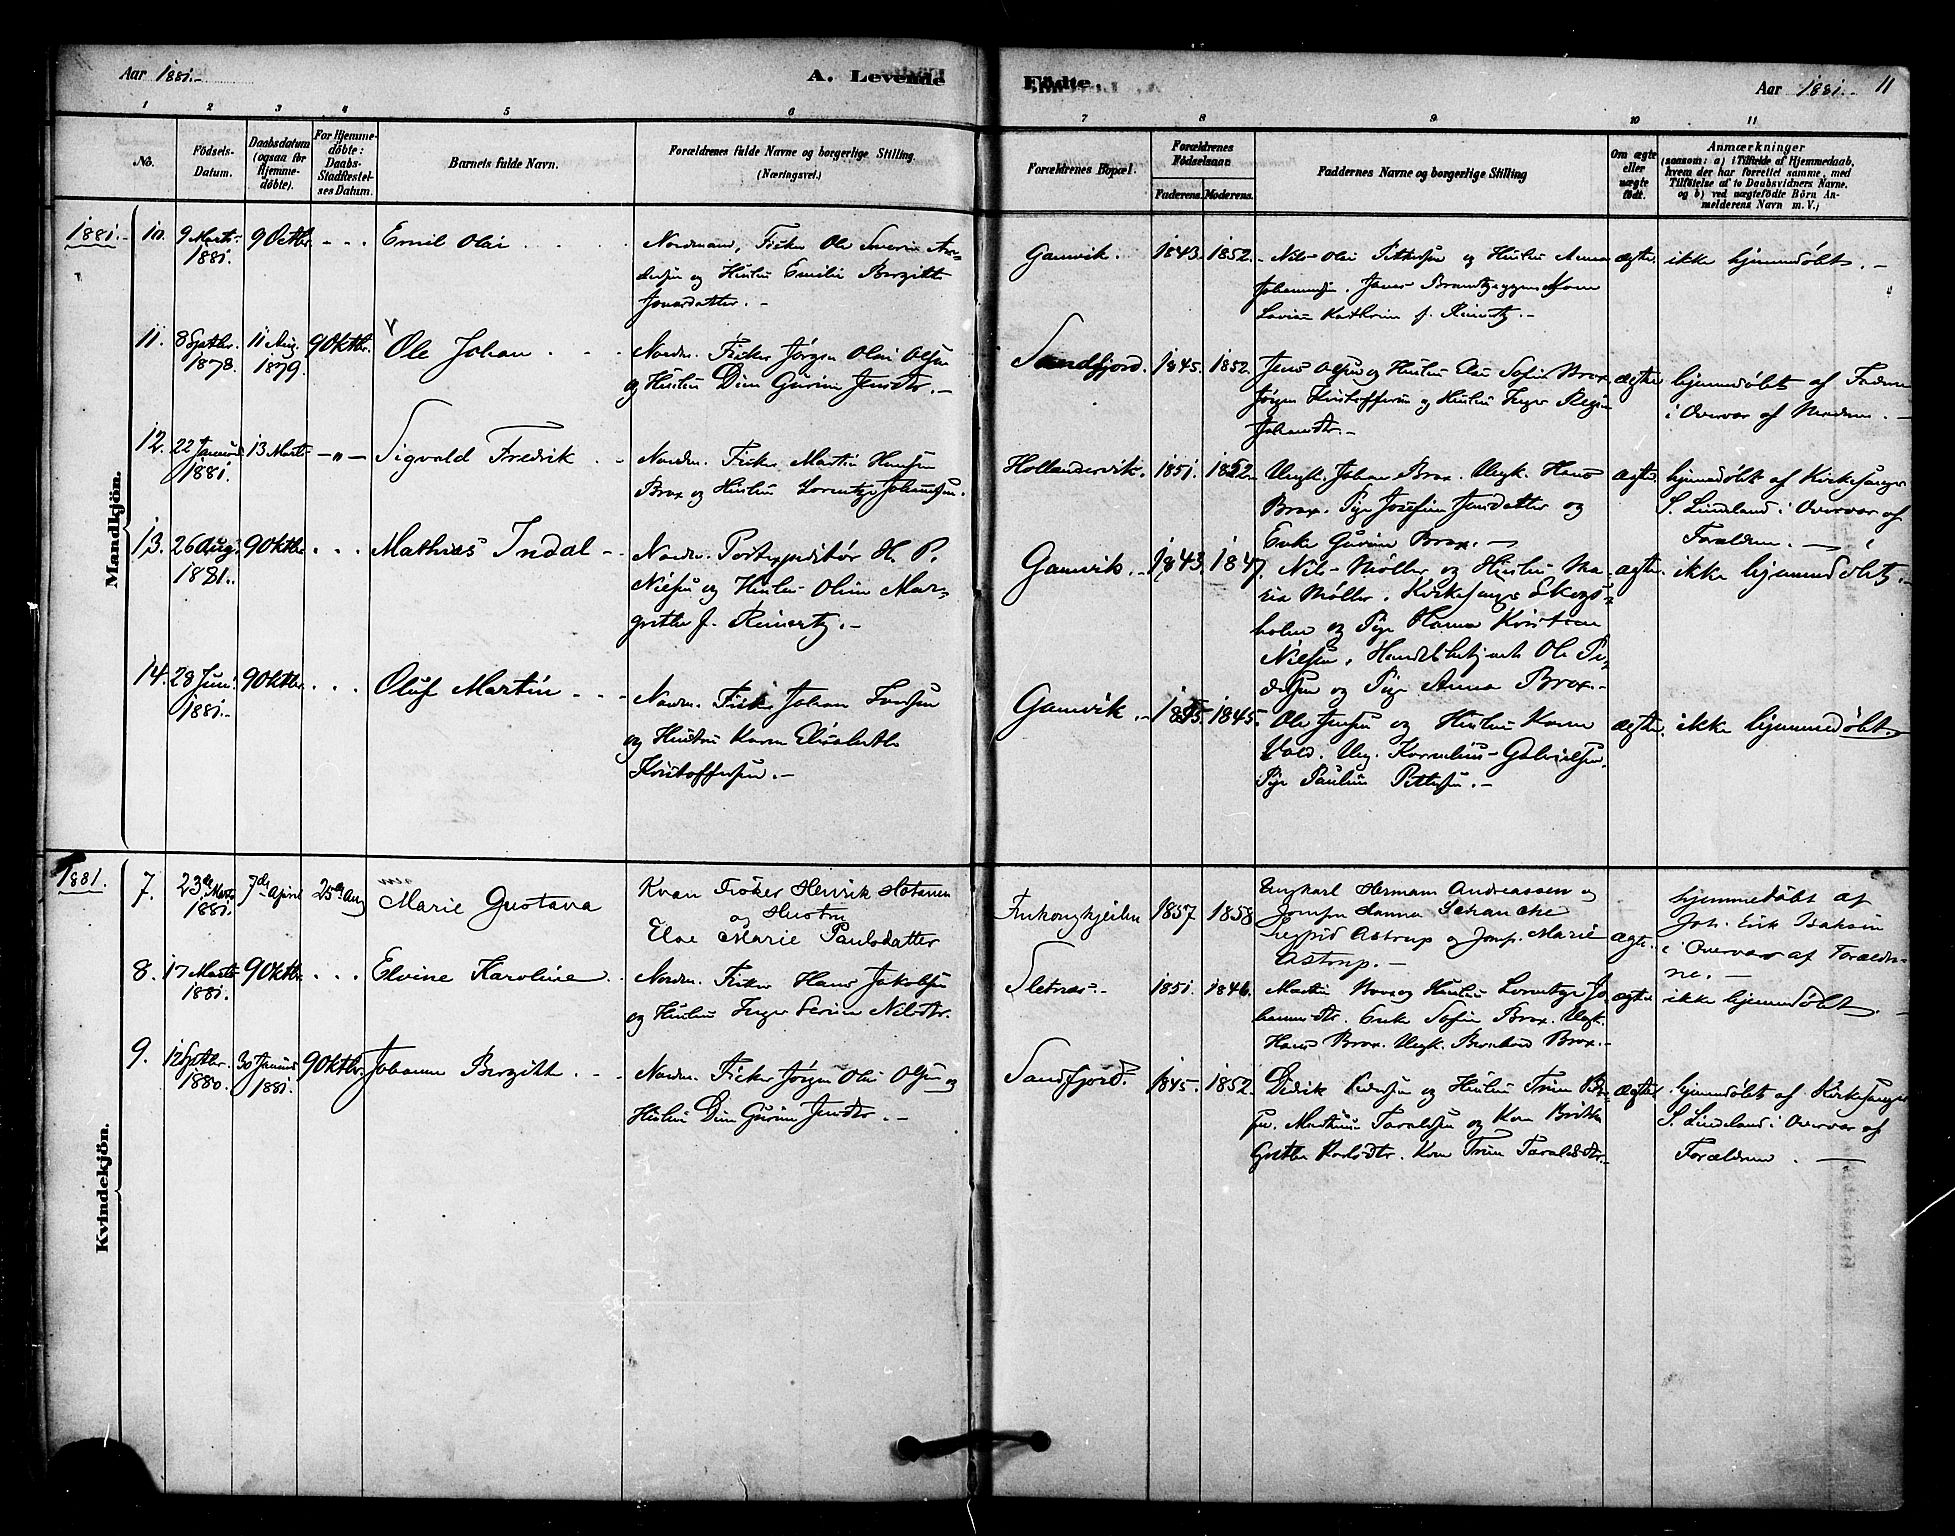 Aar 1881.
A. Levende
Födte.
Aar 1881.
11
1
2
3
4
5
6
7
8
9
10
11
No.
Födsels-
Datum.
Daabsdatum
(ogsaa for
Hjemme-
döbte).
For Hjemme-
döbte:
Daabs-
Stadfæstel-
ses Datum.
Barnets fulde Navn.
Forældrenes fulde Navne og borgerlige Stilling
(Næringsvei.)
Forældrenes Bopæl.
Forældrenes
Födselsaar
Faderens.
Moderens.
Faddernes Navne og borgerlige Stilling
Om ægte
eller
uægte
födt.
Anmærkninger
(saasom: a) i Tilfælde af Hjemmedaab,
hvem der har forrettet samme, med
Tilföielse af to Daabsvidners Navne,
og b) ved uægtefödte Börn An-
melderens Navn m. V.;
Mandkjön.
1881.
10.
9 Marts
1881.
9 Octbr.
Emil Olai
Nordmand, Fisker Ole Severin An-
dersen og Hustru Emilie Bergitte
Jonasdatter.
Gamvik.
1843.
1852.
Nils Olai Pettersen og Hustru Anna
ægte.
ikke hjemmedöbt.
11.
8 Septbr.
1878.
11 Aug.
1879.
9 Oktbr.
Ole Johan
Nordm. Fisker Jörgen Olai Olsen
og Hustru Dina Gurine Jensdtr.
Sandfjord.
1845.
1852.
Jens Olsen og Hustru Else Sofie Brox
Jörgen Kristoffersen og Hustru Inger Regine
Johansdtr.
ægte.
hjemmedöbt af Faderen
i Overvær af Moderen.
12.
22 Januar
1881.
13 Marts
Sigvald Fredrik
Nordm. Fisker Martin Hansen
Brox og Hustru Lorentze Johansen.
Hollandervik.
1851.
1852.
Ungk. Johan Brox. Ungk. Hans
Brox. Pige Josefine Jensdatter og
Enke Gurine Brox.
ægte.
hjemmedöbt af Kirkesanger
S. Lindeland i Overvær af
Forældrene.
13.
26 Aug.
1881.
9 Oktbr.
Mathias Indal
Nordm. Postexpeditör H. P.
Nielsen og Hustru Oline Mar-
grethe f. Reinertz.
Gamvik.
1843.
1847.
Nils Möller og Hustru Ma-
ria Möller. Kirkesanger Skogs-
holm og Pige Hanna Kristine
Nielsen, Handelsbetjent Ole Pe-
dersen og Pige Anna Brox.
ægte.
ikke hjemmedöbt.
14.
28 Juni
1881.
9 Oktbr.
Oluf Martin
Nordm. Fisker Johan Iversen
og Hustru Karen Elisabeth
Kristoffersen.
Gamvik.
1845.
Ole Jensen og Hustru Karen
Vald. Ung. Kornelius Gabrielsen.
Pige Pauline Pettersen.
ægte.
ikke hjemmedöbt.
Kvindekjön.
1881.
7.
23de Marts
1881.
7de April
25de Aug
Marie Gustava
Kvæn Fisker Henrik Hotanen
og Hustru
Else Marie Paulsdatter
Finkongkjeilen
1857
1858
Ungkarl Herman Andreassen og
Jomfru Hanna Schanche
Sigrid Astrup og Jomf. Marie
Astrup.
ægte.
hjemmedöbt af
Joh. Erik Isaksen
i Overvær af Forældre-
ne.
8.
17 Marts
1881.
9 Oktbr.
Elvine Karoline
Nordm. Fisker Hans Jakobsen
og Hustru Inger Serine Nilsdtr.
Sletnæs.
1851.
1846.
Martin Brox og Hustru Lorentze Jo-
hannesdtr. Enke Sofie Brox. Ungk.
Hans Brox. Ungk. Bernhard Brox.
ægte.
ikke hjemmedöbt.
9.
12 Septbr.
1880.
30 Januar
1881.
9 Oktbr.
Johanne Bergitte
Nordm. Fisker Jörgen Olai Olsen og
Hustru Dina Gurine Jensdtr.
Sandfjord.
1845.
1852.
Didrik Pedersen og Hustru Trine Peder-
sen. Marthinus Taraldsen og Kone Brithe
Grethe Karlsdtr. Kone Trine Taraldsdtr.
ægte.
hjemmedöbt af Kirkesanger
S. Lindeland i Overvær af
Forældrene.